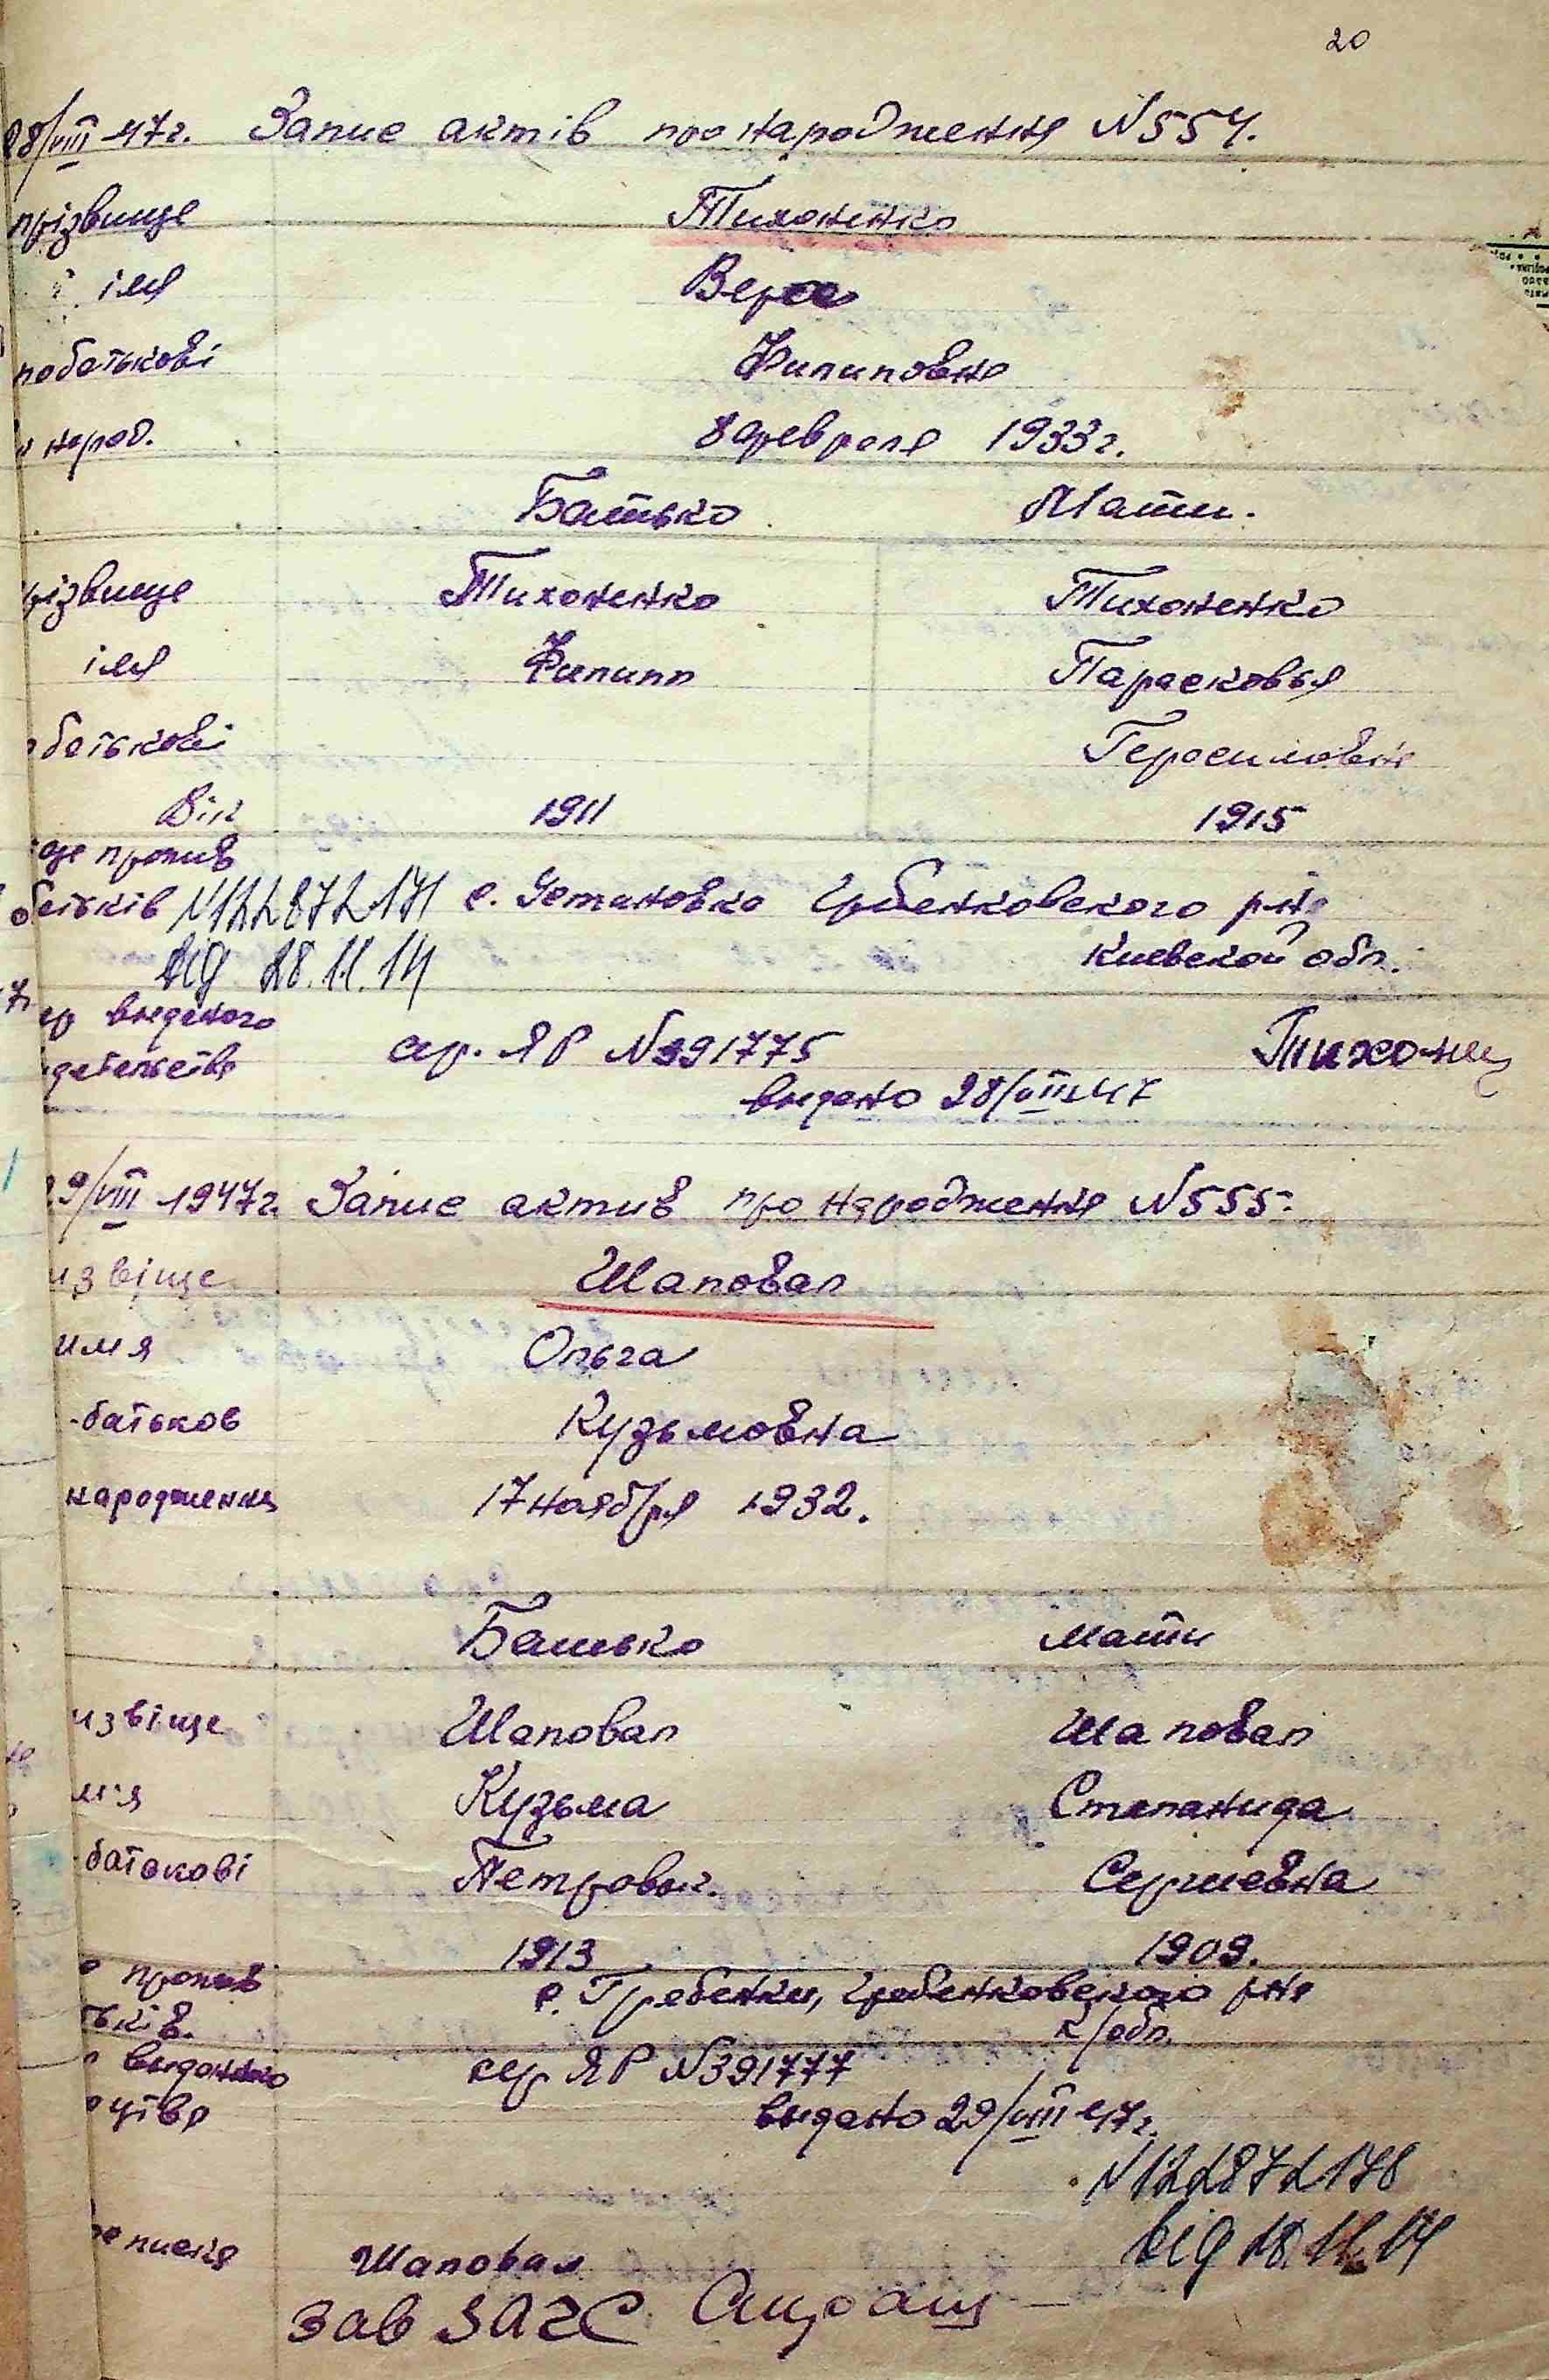 20
28/VIII 47г. Запис актів про народження N554.
прізвище Тихоненко
імя Вера
побатькові Филиповна
народ. 8 февраля 1933г.
Батько Мати.
різвище Тихоненко Тихоненко
імя Филипп Парасковья
батькові Герасимовна
Вік 1911 1915
це прожив
батьків N122872171 с. Устиновка Гребенковского р-на
від 28.11.14 Киевской обл.
ер выданого сер. ЯР N391775 Тихонец
детельства выдано 28/VIII 47
29/VIII 1947г. Запис актив про народження N555.
извіще Шаповал
имя Ольга
-батьков Кузьмовна
народження 17 ноября 1932.
Батько мати
извіще Шаповал Шаповал
мя Кузьма Степанида
-батькові Петрович. Сергиевна
1913 1909.
прожив с. Гребенки, Гребенковского р-на
тьків. К/обл.
выданого сер ЯР N391777
цтва выдано 29/VIII 47г.
N122872178
від 28.11.14
Шаповал
зав ЗАГС